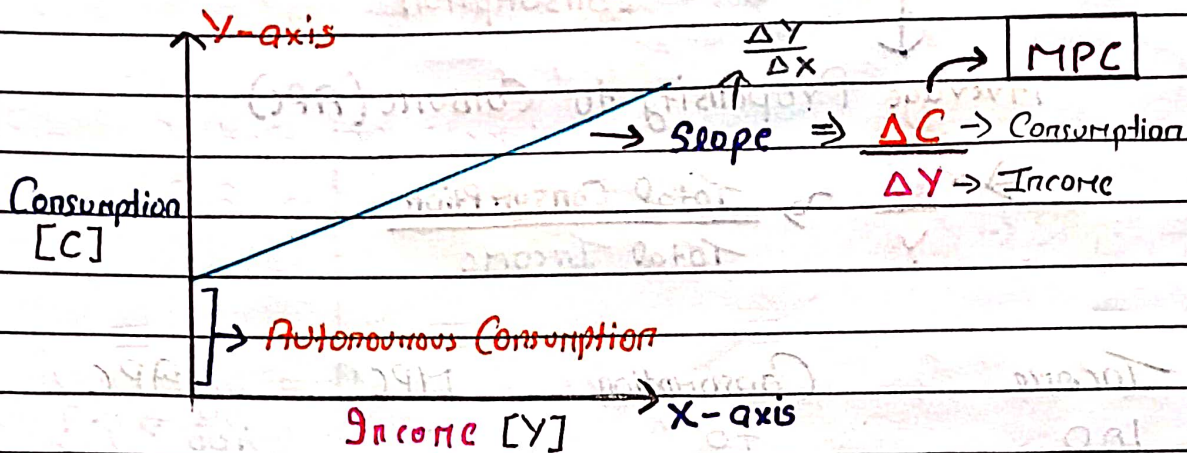 Y-axis
ΔY
ΔX
MPC
→ Slope ⇒ ΔC → Consumption
ΔY → Income
Consumption
[C]
→ Autonomous Consumption
X-axis
Income [Y]